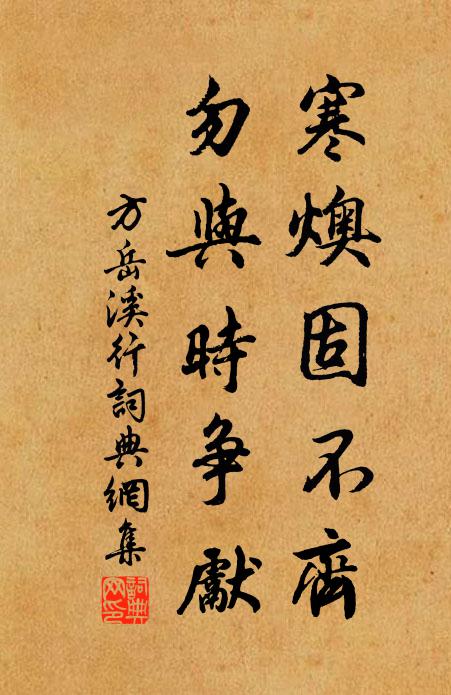 寒燠固不齊
勿與時争獻
方岳溪行詞典網集
詞典网印